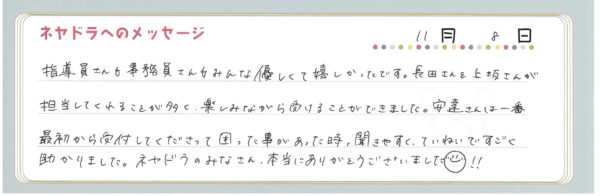 ネヤドラへのメッセージ
11月 8日
指導員さんも事務員さんもみんな優しくて嬉しかったです。長田さんと上坂さんが
担当してくれることが多く、楽しみながら受けることができました。安達さんは一番
最初から受付してくださって困った事があった時、聞きやすく、ていねいですごく
助かりました。ネヤドラのみなさん、本当にありがとうございました!!